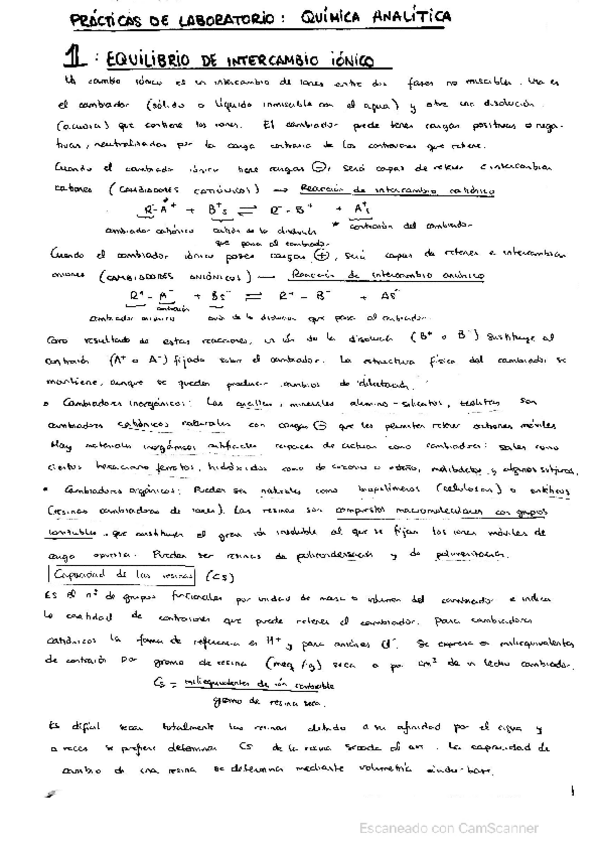 PRÁCTICAS DE LABORATORIO: QUÍMICA ANALÍTICA
1: EQUILIBRIO DE INTERCAMBIO IÓNICO
cambio iónico es un intercambio de iones entre dos fases no miscibles. Una es
el cambiador (sólido o líquido inmiscible con el agua) y otra una disolución
(acuosa) que contiene los iones. El cambiador puede tener cargas positivas o nega-
tivas, neutralizadas por la carga contraria de los contraiones que retiene.
Cuando el cambiador iónico tiene cargas ⊖, será capaz de retener e intercambiar
cationes (CAMBIADORES CATIÓNICOS) → Reacción de intercambio catiónico
R⁻A⁺ + B⁺s ⇌ R⁻-B⁺ + A⁺s
cambiador catiónico catión de la disolución * contraión del cambiador
que pasa al cambiador
Cuando el cambiador iónico posee cargas ⊕, será capaz de retener e intercambiar
aniones (CAMBIADORES ANIÓNICOS) → Reacción de intercambio aniónico
R⁺-A⁻ + Bs⁻ ⇌ R⁺-B⁻ + As⁻
contraión
cambiador aniónico anión de la disolución que pasa al cambiador.
Como resultado de estas reacciones, un ión de la disolución (B⁺ o B⁻) sustituye al
contraión (A⁺ o A⁻) fijado sobre el cambiador. La estructura física del cambiador se
mantiene, aunque se pueden producir cambios de dilatación.
• Cambiadores inorgánicos: Las arcillas, minerales alumino-silicatos, zeolitas son
cambiadores catiónicos naturales con cargas ⊖ que les permiten retener cationes móviles
Hay materiales inorgánicos artificiales capaces de actuar como cambiadores: sales como
ciertos hexaciano ferratos, hidróxidos como de circonio o estaño, molibdatos y algunos sulfuros.
• Cambiadores orgánicos: Pueden ser naturales como biopolímeros (celulosas) o sintéticos
(resinas cambiadoras de iones). Las resinas son compuestos macromoleculares con grupos
ionizables, que constituyen el gran ión insoluble al que se fijan los iones móviles de
carga opuesta. Pueden ser resinas de policondensación y de polimerización.
Capacidad de las resinas (Cs)
Es el nº de grupos funcionales por unidad de masa o volumen del cambiador e indica
la cantidad de contraiones que puede retener el cambiador. Para cambiadores
catiónicos la forma de referencia es H⁺ y para aniones Cl⁻. Se expresa en miliequivalentes
de contraión por gramo de resina (meq/g) seca o por cm³ de un lecho cambiador.
Cs = miliequivalentes de ión cambiable
gramo de resina seca.
Es difícil secar totalmente las resinas debido a su afinidad por el agua y
a veces se prefiere determinar Cs de la resina secada al aire. La capacidad de
cambio de una resina se determina mediante volumetría ácido-base.
1
Escaneado con CamScanner